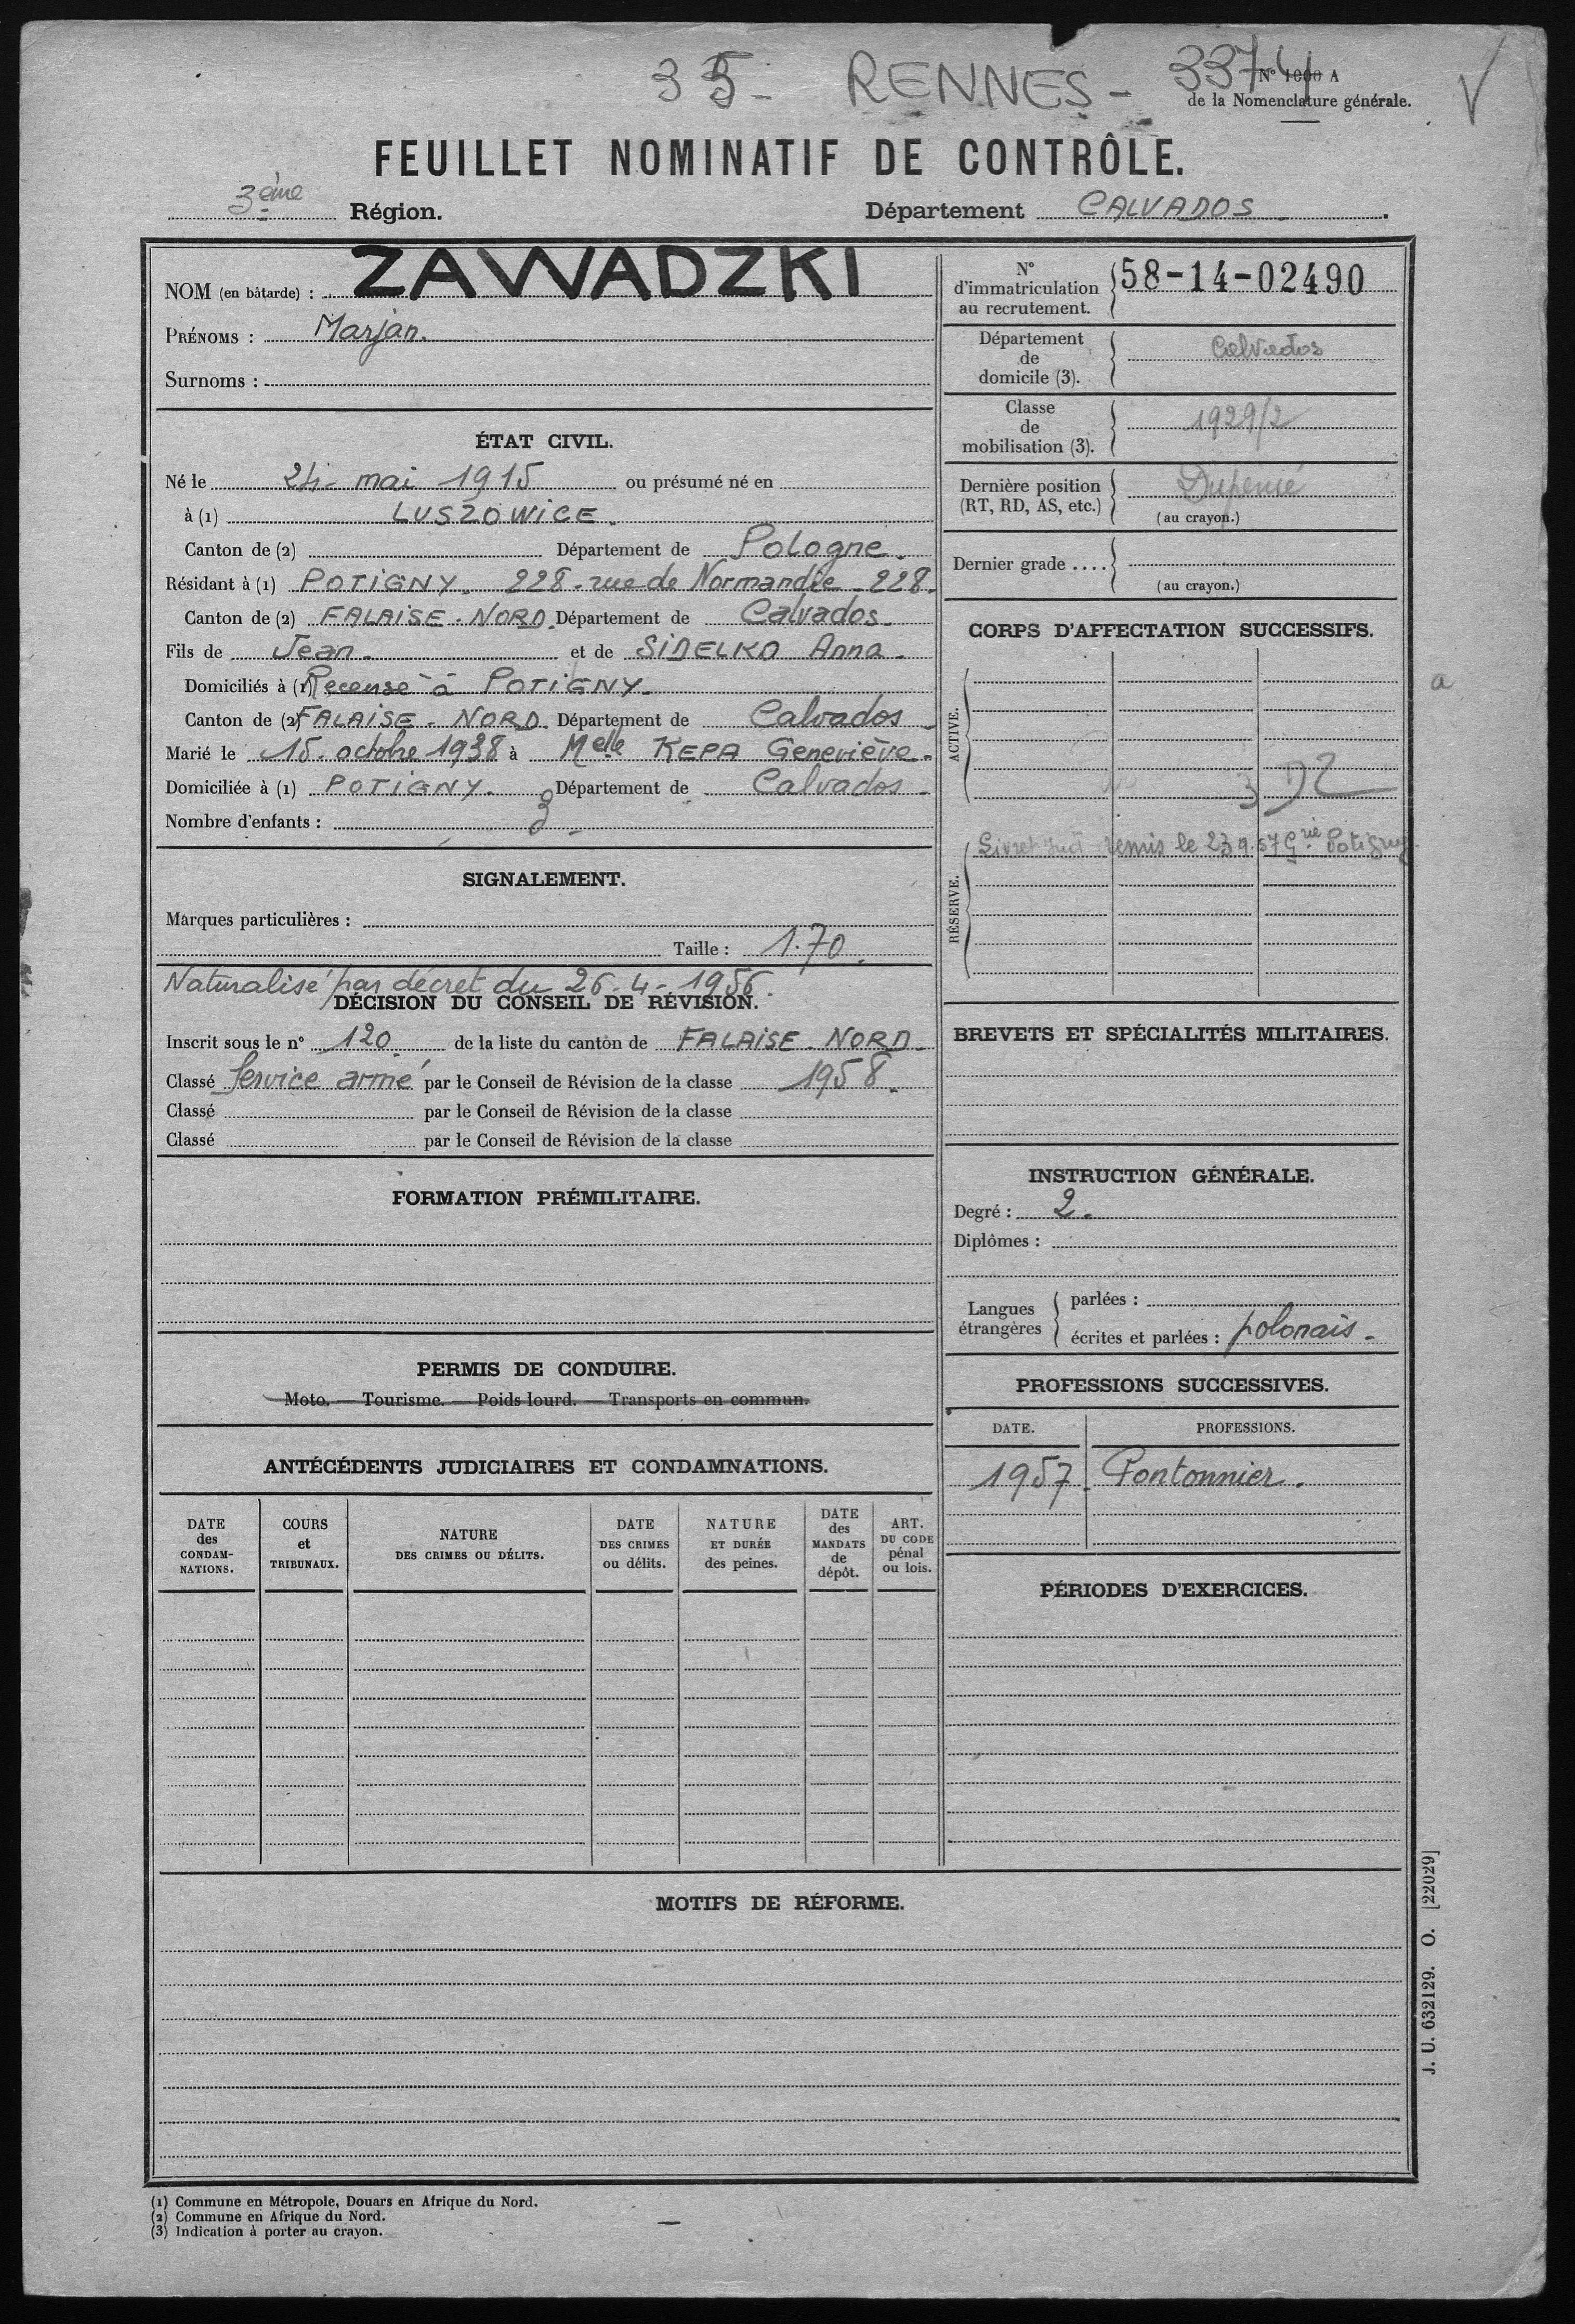 35 - RENNES - 3374
N° 1000 A
de la Nomenclature générale.
V
FEUILLET NOMINATIF DE CONTRÔLE.
3ème Région.
Département CALVADOS
NOM (en bâtarde) : ZAWADZKI
PRÉNOMS : Marjan.
Surnoms :
ÉTAT CIVIL.
Né le 24 - mai 1915 ou présumé né en
à (1) LUSZOWICE.
Canton de (2) Département de Pologne.
Résidant à (1) POTIGNY. 228 - rue de Normandie - 228.
Canton de (2) FALAISE - NORD. Département de Calvados.
Fils de Jean - et de SIDELKO Anna -
Domiciliés à (1) Recensé à POTIGNY.
Canton de (2) FALAISE - NORD. Département de Calvados -
Marié le 15 - octobre 1938 à Melle KEPA Geneviève.
Domiciliée à (1) POTIGNY. Département de Calvados -
Nombre d'enfants : 3 -
SIGNALEMENT.
Marques particulières :
Taille : 1.70.
Naturalisé par décret du 26-4-1956.
DÉCISION DU CONSEIL DE RÉVISION.
Inscrit sous le n° 120. de la liste du canton de FALAISE - NORD -
Classé Service armé par le Conseil de Révision de la classe 1958.
Classé par le Conseil de Révision de la classe
Classé par le Conseil de Révision de la classe
FORMATION PRÉMILITAIRE.
PERMIS DE CONDUIRE.
Moto. — Tourisme. — Poids lourd. — Transports en commun.
ANTÉCÉDENTS JUDICIAIRES ET CONDAMNATIONS.
DATE des CONDAM-NATIONS.
COURS et TRIBUNAUX.
NATURE DES CRIMES OU DÉLITS.
DATE DES CRIMES ou délits.
NATURE ET DURÉE des peines.
DATE des MANDATS de dépôt.
ART. DU CODE pénal ou lois.
N° d'immatriculation au recrutement. 58-14-02490
Département de domicile (3). Calvados
Classe de mobilisation (3). 1929/2
Dernière position (RT, RD, AS, etc.)
(au crayon.)
Dernier grade ....
(au crayon.)
CORPS D'AFFECTATION SUCCESSIFS.
ACTIVE.
3
a
RÉSERVE.
Livret remis le 23.9.57 Grie Potigny
BREVETS ET SPÉCIALITÉS MILITAIRES.
INSTRUCTION GÉNÉRALE.
Degré : 2.
Diplômes :
Langues étrangères
parlées :
écrites et parlées : polonais -
PROFESSIONS SUCCESSIVES.
DATE. PROFESSIONS.
1957. Pontonnier.
PÉRIODES D'EXERCICES.
MOTIFS DE RÉFORME.
J. U. 632129. O. [22029]
(1) Commune en Métropole, Douars en Afrique du Nord.
(2) Commune en Afrique du Nord.
(3) Indication à porter au crayon.